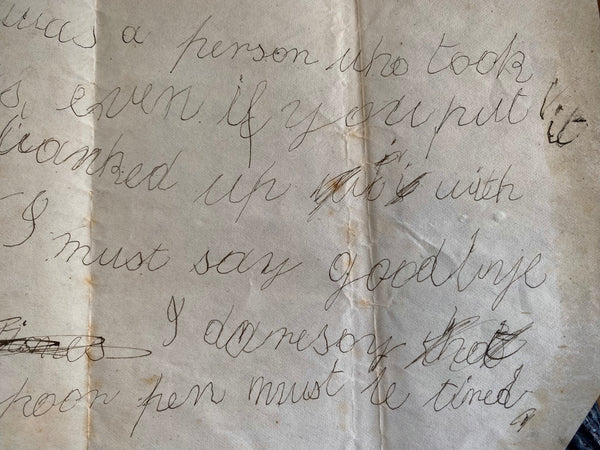 was a person who took
s, even if you put it
up in with
I must say goodbye
I daresay that
poor pen must be tired,